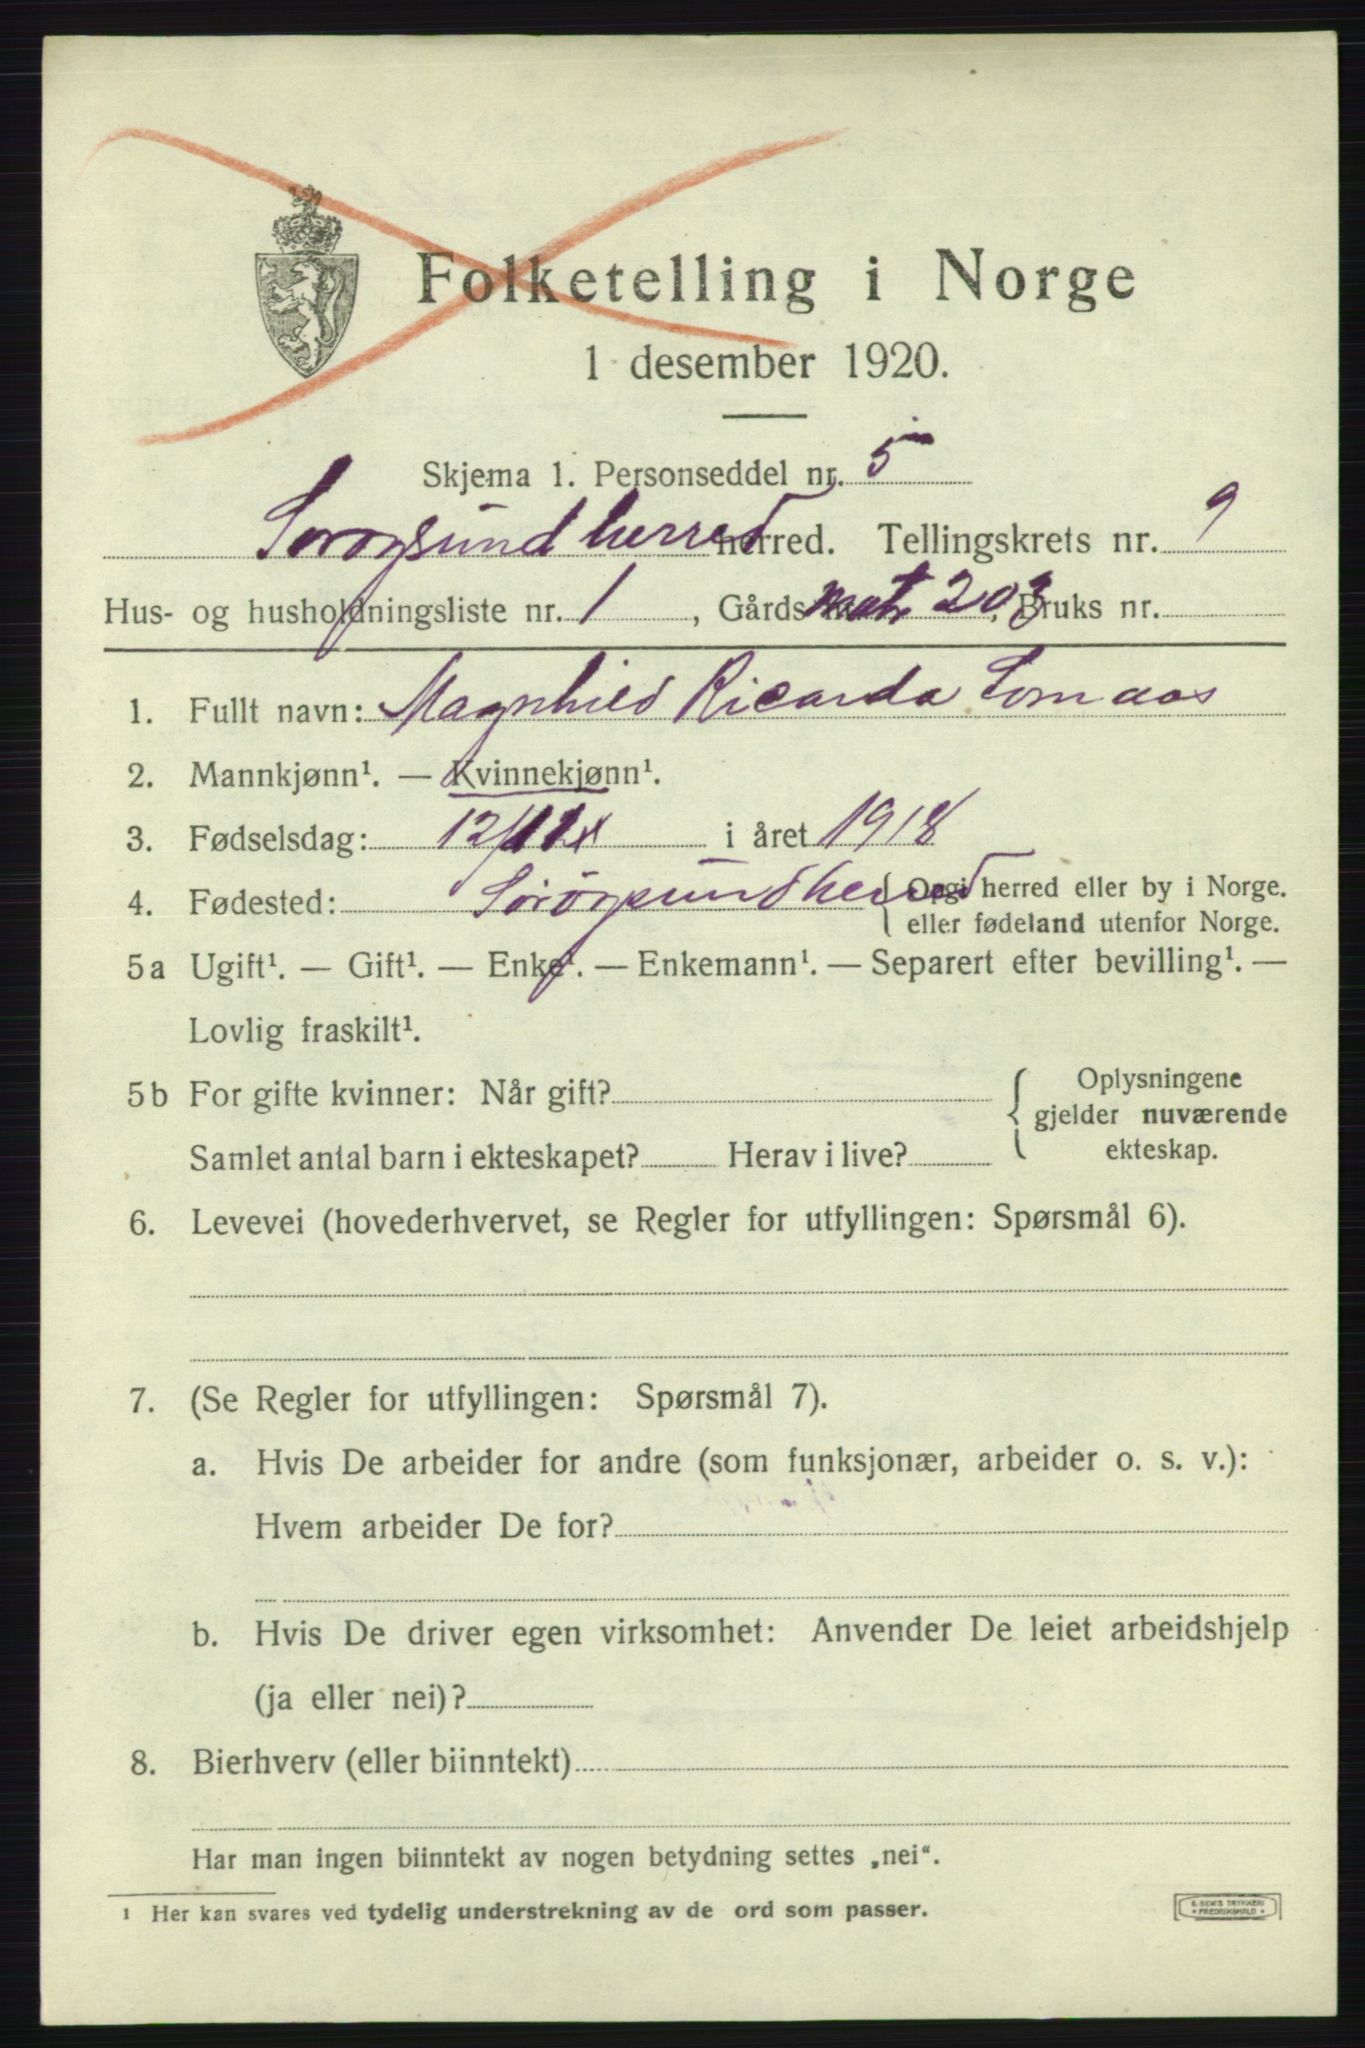 Folketelling i Norge
1 desember 1920.
Skjema 1. Personseddel nr. 5
Sørøysund herred herred. Tellingskrets nr. 9
Hus- og husholdningsliste nr. 1, Gårds matr 203, Bruks nr.
1. Fullt navn: Magnhild Ricarda Somaas
2. Mannkjønn¹. — Kvinnekjønn¹.
3. Fødselsdag: 12/11 i året 1918
4. Fødested: Sørøysund herred { Opgi herred eller by i Norge.
eller fødeland utenfor Norge.
5a Ugift¹. — Gift¹. — Enke¹. — Enkemann¹. — Separert efter bevilling¹. —
Lovlig fraskilt¹.
5b For gifte kvinner: Når gift? { Oplysningene
gjelder nuværende
Samlet antal barn i ekteskapet? Herav i live? ekteskap.
6. Levevei (hovederhvervet, se Regler for utfyllingen: Spørsmål 6).
7. (Se Regler for utfyllingen: Spørsmål 7).
a. Hvis De arbeider for andre (som funksjonær, arbeider o. s. v.):
Hvem arbeider De for?
b. Hvis De driver egen virksomhet: Anvender De leiet arbeidshjelp
(ja eller nei)?
8. Bierhverv (eller biinntekt)
Har man ingen biinntekt av nogen betydning settes „nei“.
1 Her kan svares ved tydelig understrekning av de ord som passer.
E. SEM'S TRYKKERI
FREDRIKSHALD